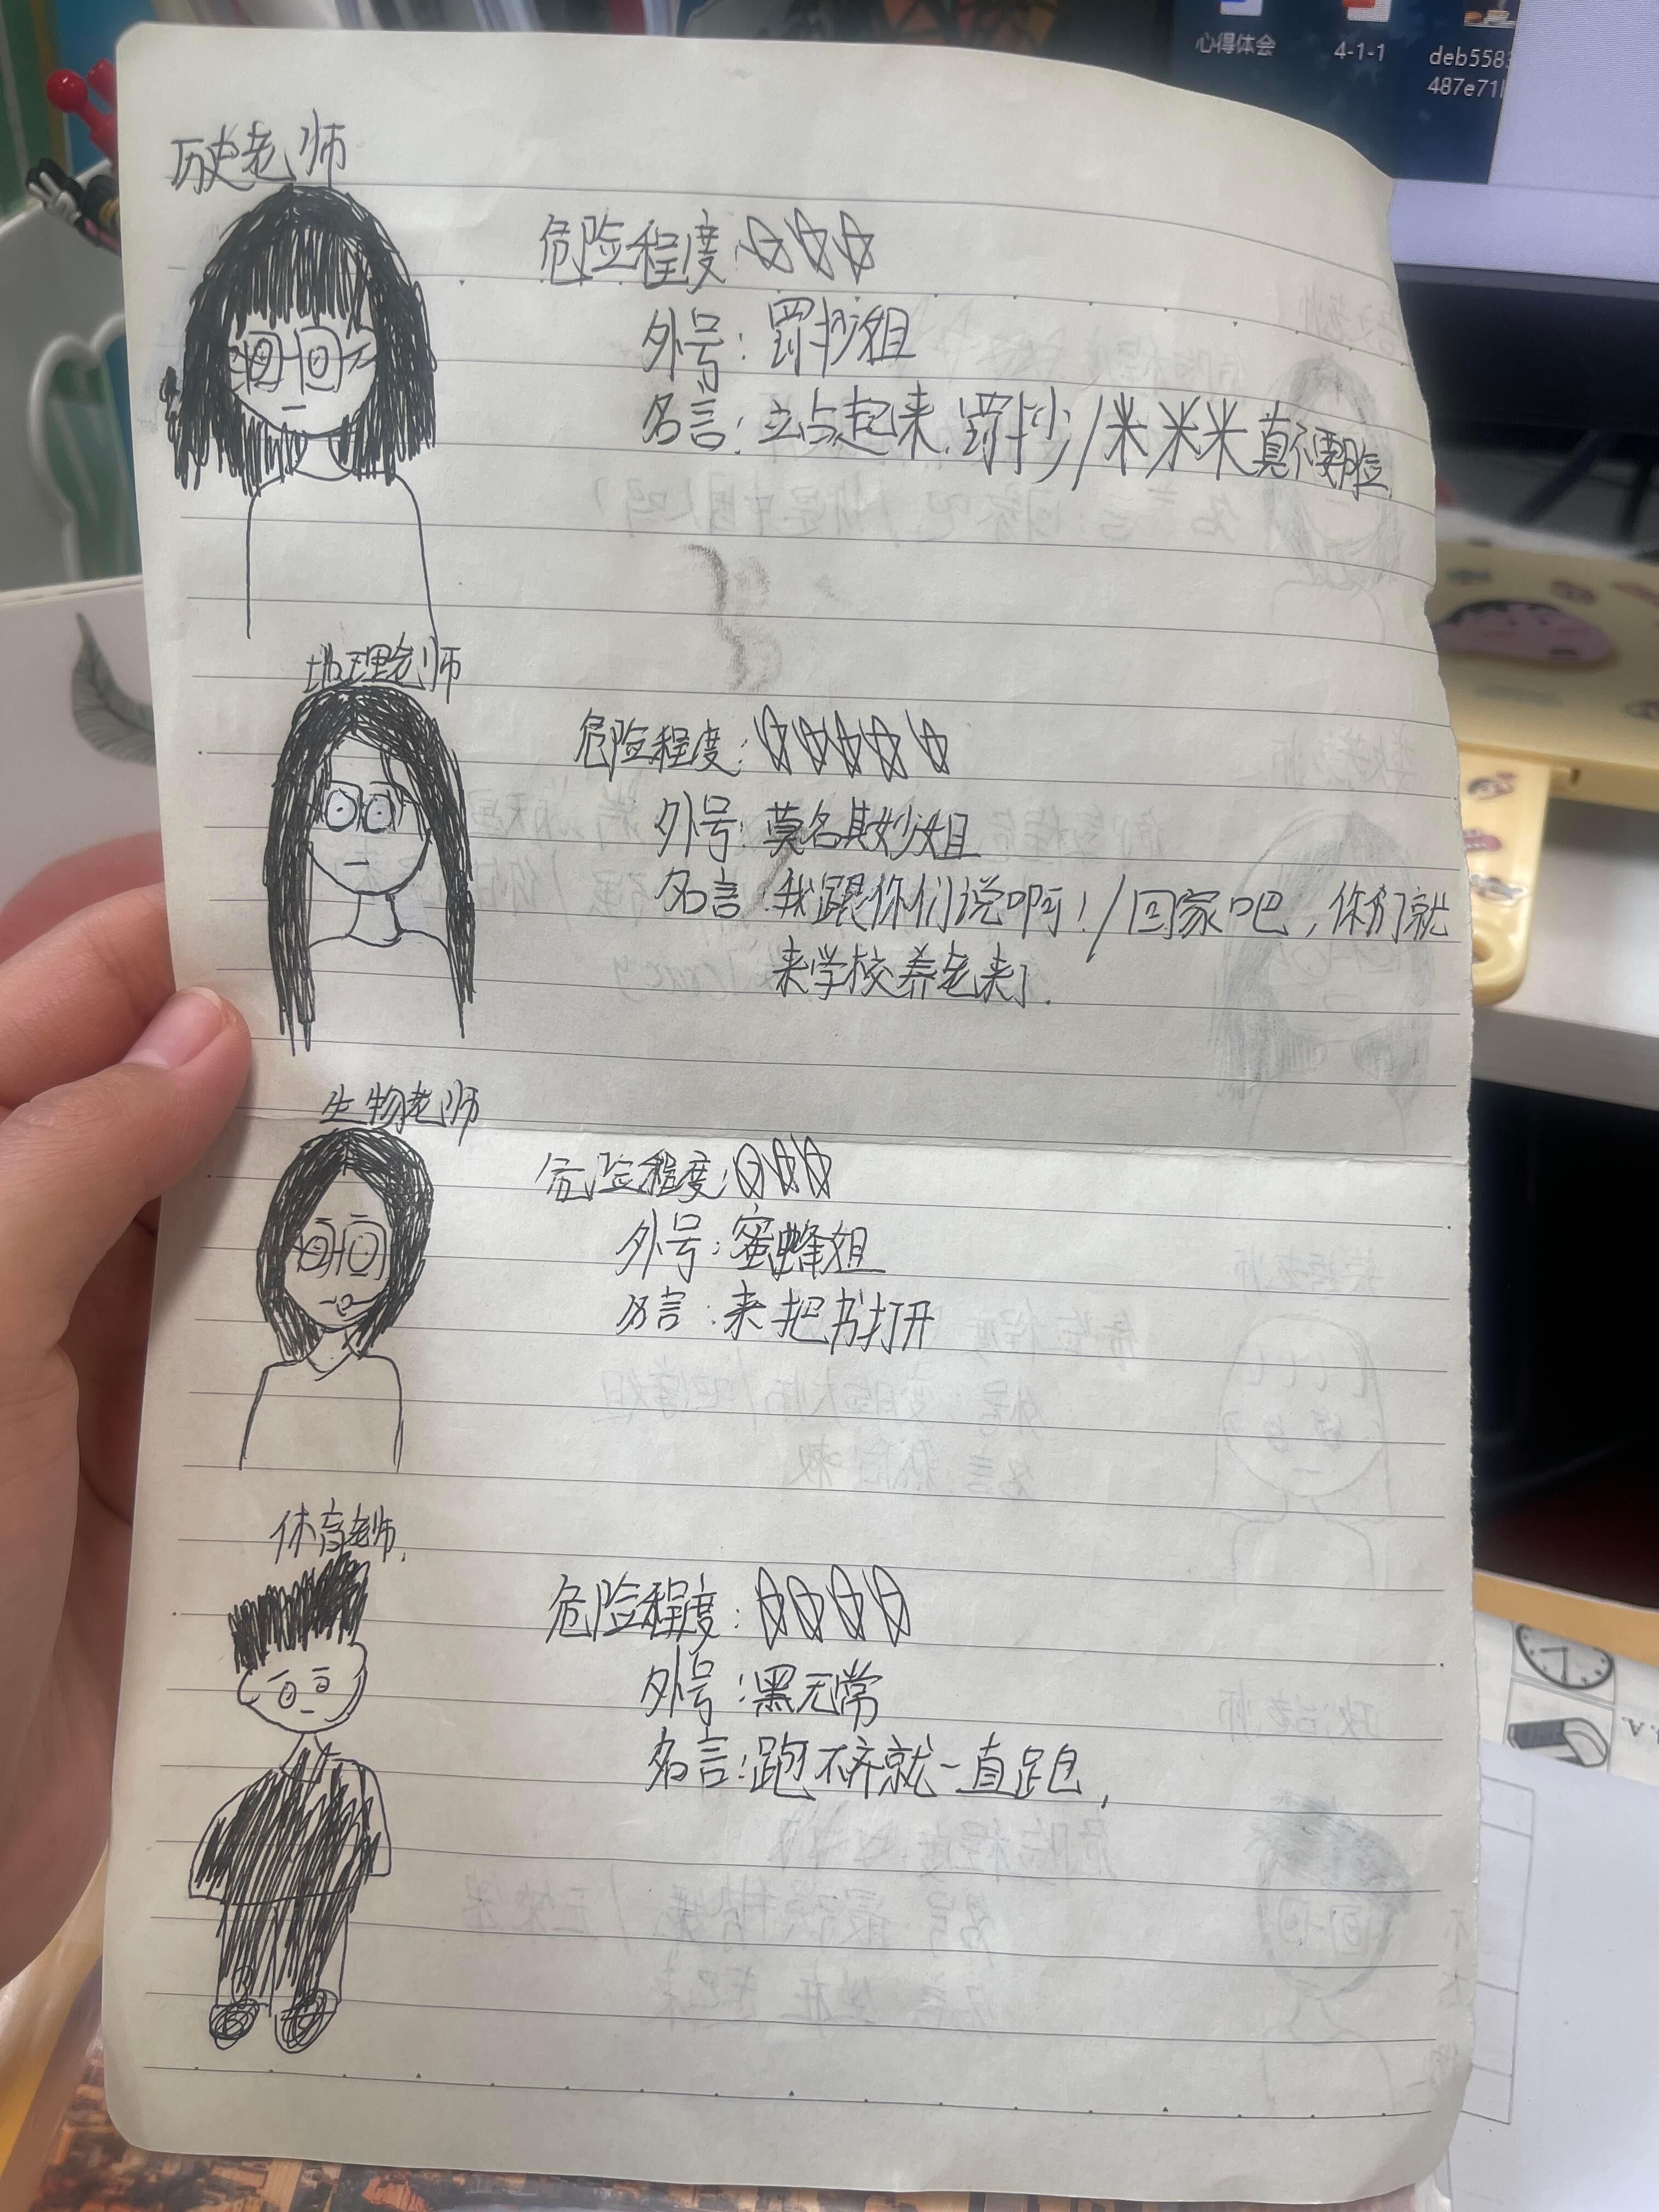 心得体会
4-1-1
487e71
历史老师
危险程度:☆☆☆
外号:罚抄姐
名言:站起来,罚抄/米米米真不要脸
地理老师
危险程度:☆☆☆☆☆
外号:莫名其妙姐
名言:我跟你们说啊!/回家吧,你们就
来学校养老来了.
生物老师
危险程度:☆☆☆
外号:蜜蜂姐
名言:来把书打开
体育老师.
危险程度:☆☆☆☆
外号:黑无常
名言:跑不齐就一直跑,